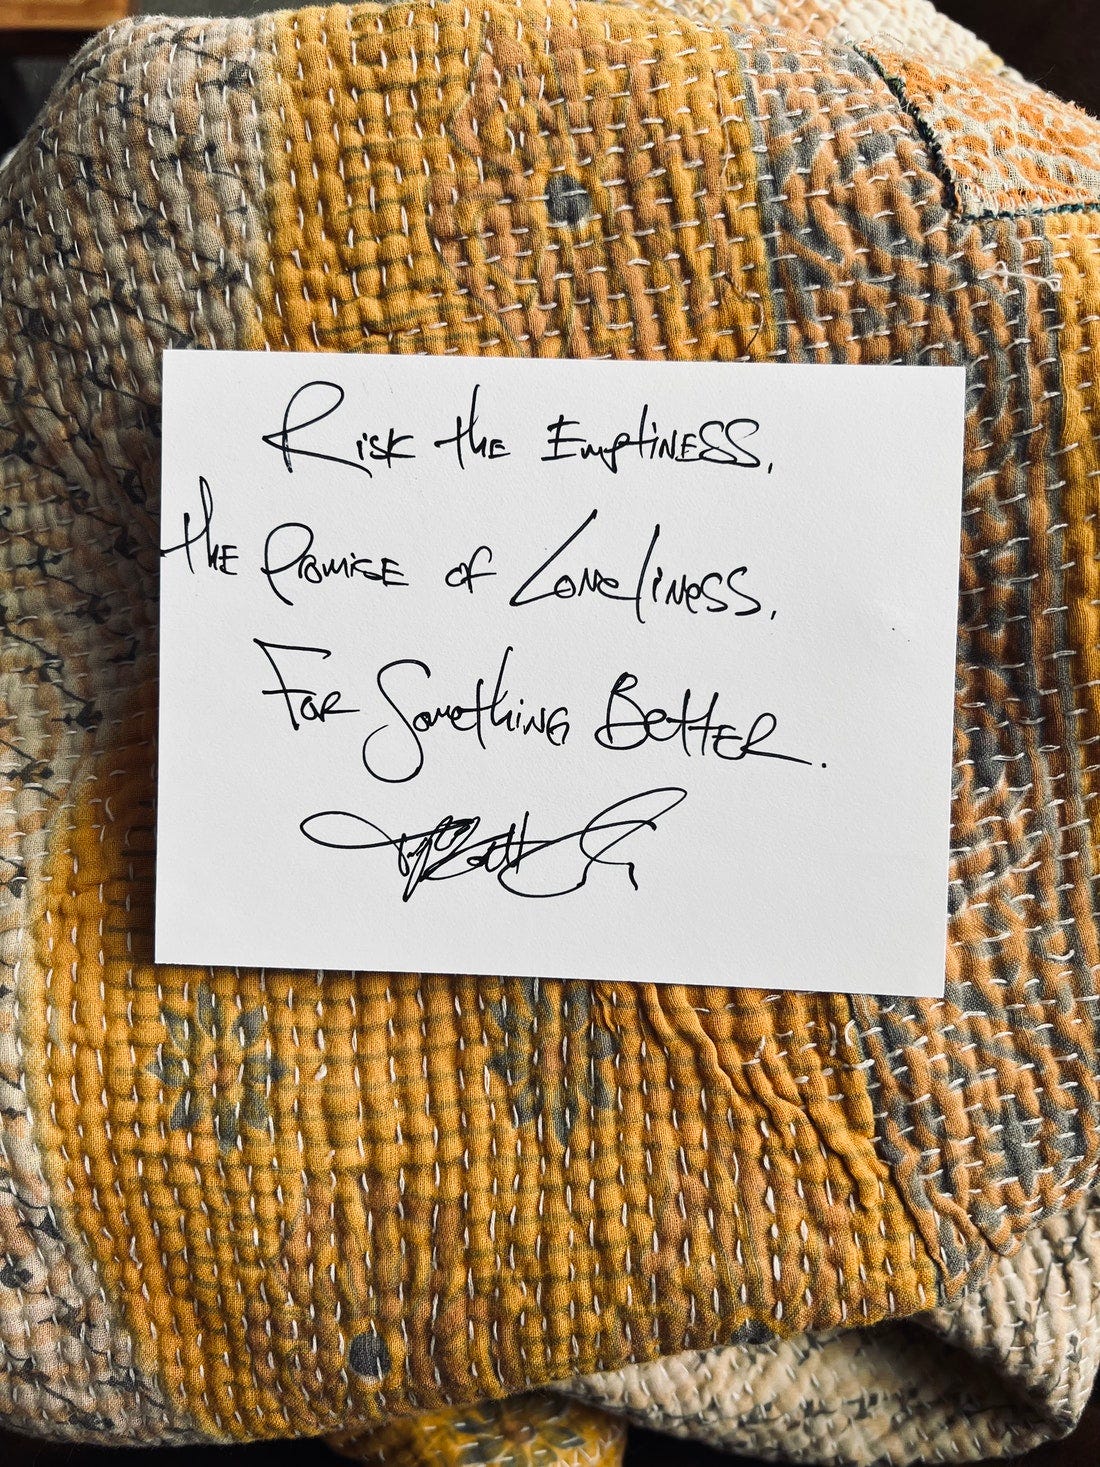 Risk the Emptiness,
the Promise of Loneliness,
For Something Better.